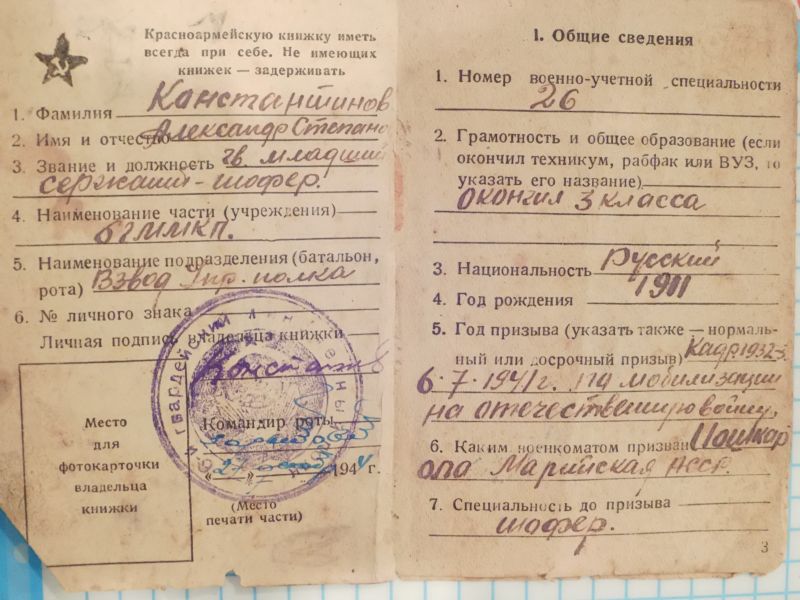 Красноармейскую книжку иметь
всегда при себе. Не имеющих
книжек — задерживать
1. Фамилия Канстантинов
2. Имя и отчество Александр Степано
3. Звание и должность гв младший
сержант - шофер.
4. Наименование части (учреждения)
6 гммкп.
5. Наименование подразделения (батальон,
рота) Взвод Упр. полка
6. № личного знака
Личная подпись владельца книжки
Констант
Командир роты
Место
для
фотокарточки
владельца
книжки
„27" 1944 г.
(Место
печати части)
I. Общие сведения
1. Номер военно-учетной специальности
26
2. Грамотность и общее образование (если
окончил техникум, рабфак или ВУЗ, то
указать его название)
окончил 3 класса
3. Национальность Русский
4. Год рождения 1911
5. Год призыва (указать также — нормаль-
ный или досрочный призыв) Кадр 1932-3.
6.7.1941г. па мобилизации
на отечественную войну,
6. Каким военкоматом призван Йошкар
ола Марийская АССР.
7. Специальность до призыва
шофер.
3